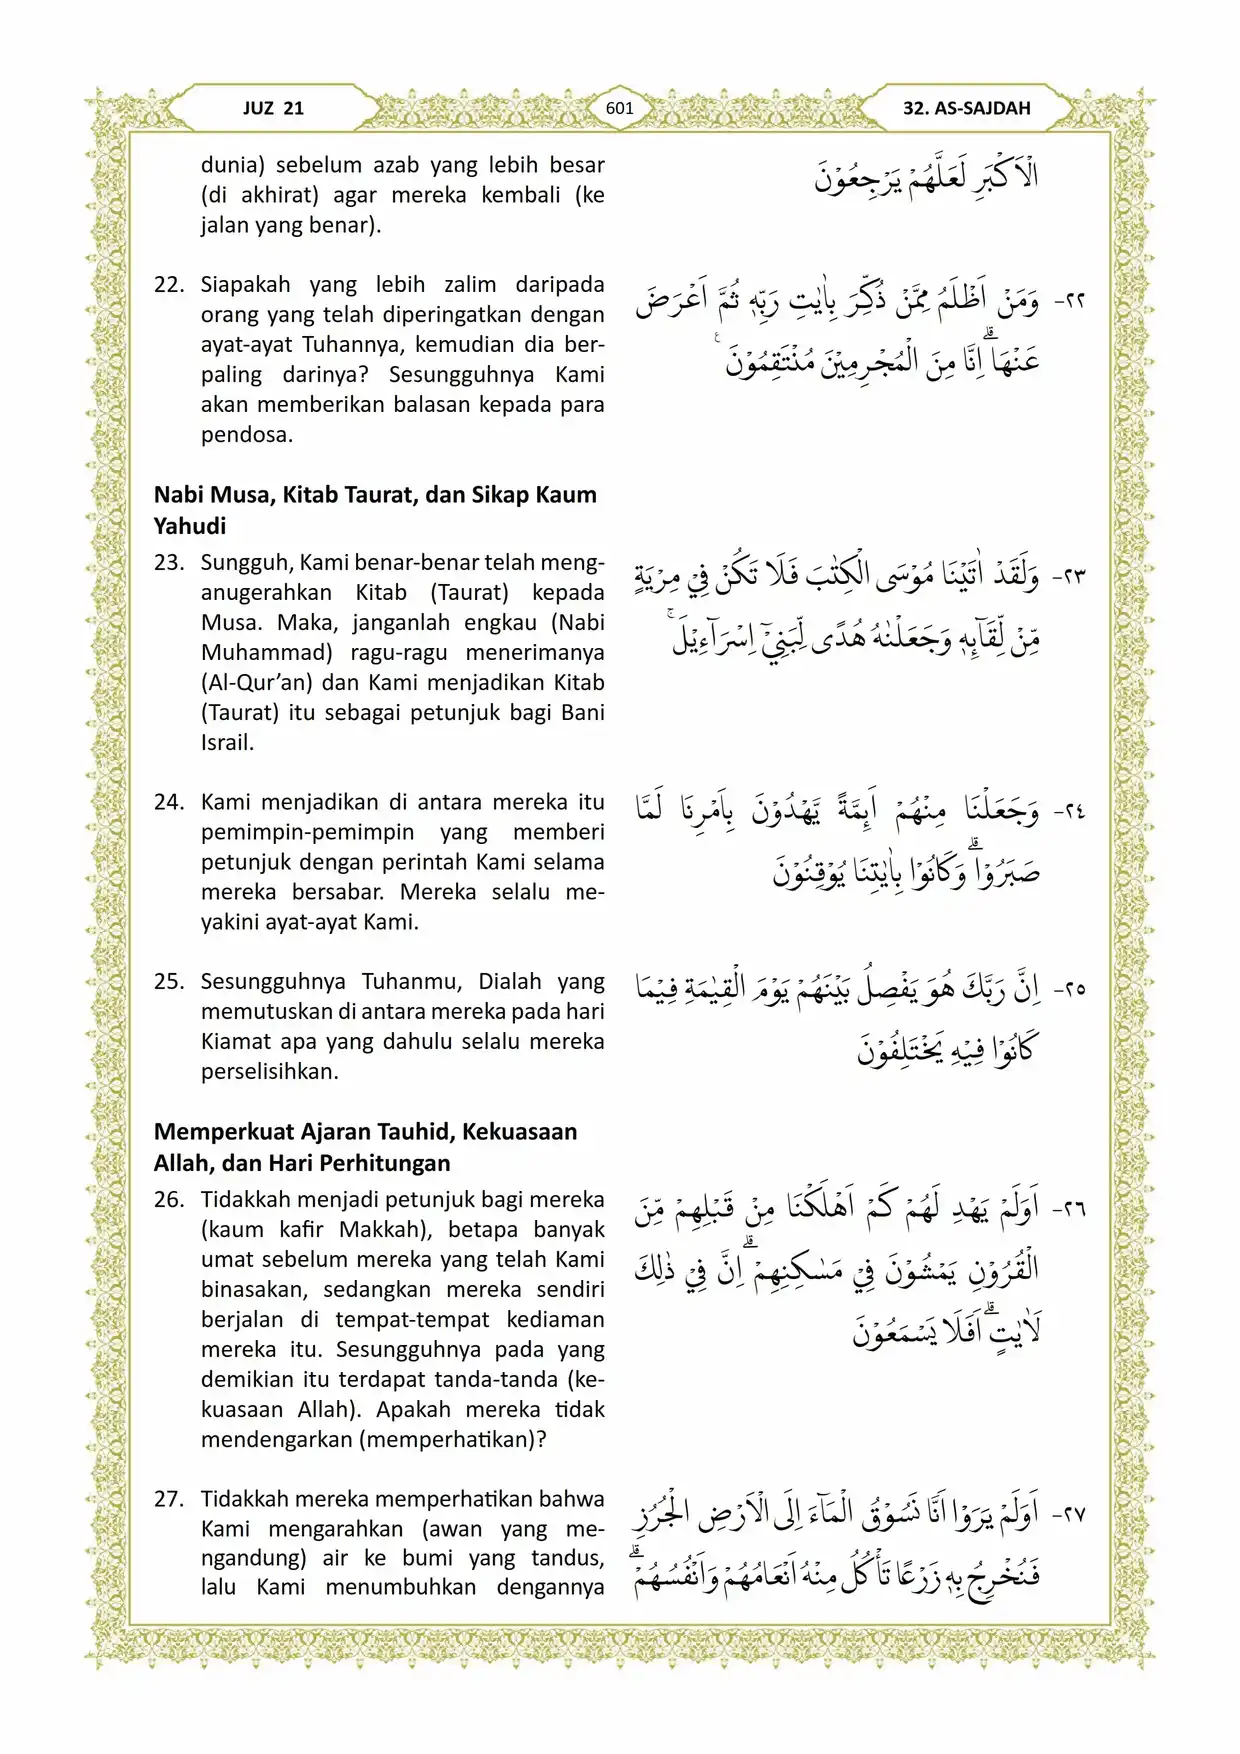 JUZ 21
601
32. AS-SAJDAH
dunia) sebelum azab yang lebih besar
(di akhirat) agar mereka kembali (ke
jalan yang benar).
الْاَكْبَرِ لَعَلَّهُمْ يَرْجِعُوْنَ
22. Siapakah yang lebih zalim daripada
orang yang telah diperingatkan dengan
ayat-ayat Tuhannya, kemudian dia ber-
paling darinya? Sesungguhnya Kami
akan memberikan balasan kepada para
pendosa.
٢٢- وَمَنْ اَظْلَمُ مِمَّنْ ذُكِّرَ بِاٰيٰتِ رَبِّهٖ ثُمَّ اَعْرَضَ
عَنْهَاۗ اِنَّا مِنَ الْمُجْرِمِيْنَ مُنْتَقِمُوْنَ ࣖ
Nabi Musa, Kitab Taurat, dan Sikap Kaum
Yahudi
23. Sungguh, Kami benar-benar telah meng-
anugerahkan Kitab (Taurat) kepada
Musa. Maka, janganlah engkau (Nabi
Muhammad) ragu-ragu menerimanya
(Al-Qur’an) dan Kami menjadikan Kitab
(Taurat) itu sebagai petunjuk bagi Bani
Israil.
٢٣- وَلَقَدْ اٰتَيْنَا مُوْسَى الْكِتٰبَ فَلَا تَكُنْ فِيْ مِرْيَةٍ
مِّنْ لِّقَاۤىِٕهٖ وَجَعَلْنٰهُ هُدًى لِّبَنِيْٓ اِسْرَاۤءِيْلَۚ
24. Kami menjadikan di antara mereka itu
pemimpin-pemimpin yang memberi
petunjuk dengan perintah Kami selama
mereka bersabar. Mereka selalu me-
yakini ayat-ayat Kami.
٢٤- وَجَعَلْنَا مِنْهُمْ اَىِٕمَّةً يَّهْدُوْنَ بِاَمْرِنَا لَمَّا
صَبَرُوْاۗ وَكَانُوْا بِاٰيٰتِنَا يُوْقِنُوْنَ
25. Sesungguhnya Tuhanmu, Dialah yang
memutuskan di antara mereka pada hari
Kiamat apa yang dahulu selalu mereka
perselisihkan.
٢٥- اِنَّ رَبَّكَ هُوَ يَفْصِلُ بَيْنَهُمْ يَوْمَ الْقِيٰمَةِ فِيْمَا
كَانُوْا فِيْهِ يَخْتَلِفُوْنَ
Memperkuat Ajaran Tauhid, Kekuasaan
Allah, dan Hari Perhitungan
26. Tidakkah menjadi petunjuk bagi mereka
(kaum kafir Makkah), betapa banyak
umat sebelum mereka yang telah Kami
binasakan, sedangkan mereka sendiri
berjalan di tempat-tempat kediaman
mereka itu. Sesungguhnya pada yang
demikian itu terdapat tanda-tanda (ke-
kuasaan Allah). Apakah mereka tidak
mendengarkan (memperhatikan)?
٢٦- اَوَلَمْ يَهْدِ لَهُمْ كَمْ اَهْلَكْنَا مِنْ قَبْلِهِمْ مِّنَ
الْقُرُوْنِ يَمْشُوْنَ فِيْ مَسٰكِنِهِمْۗ اِنَّ فِيْ ذٰلِكَ
لَاٰيٰتٍۗ اَفَلَا يَسْمَعُوْنَ
27. Tidakkah mereka memperhatikan bahwa
Kami mengarahkan (awan yang me-
ngandung) air ke bumi yang tandus,
lalu Kami menumbuhkan dengannya
٢٧- اَوَلَمْ يَرَوْا اَنَّا نَسُوْقُ الْمَاۤءَ اِلَى الْاَرْضِ الْجُرُزِ
فَنُخْرِجُ بِهٖ زَرْعًا تَأْكُلُ مِنْهُ اَنْعَامُهُمْ وَاَنْفُسُهُمْۗ